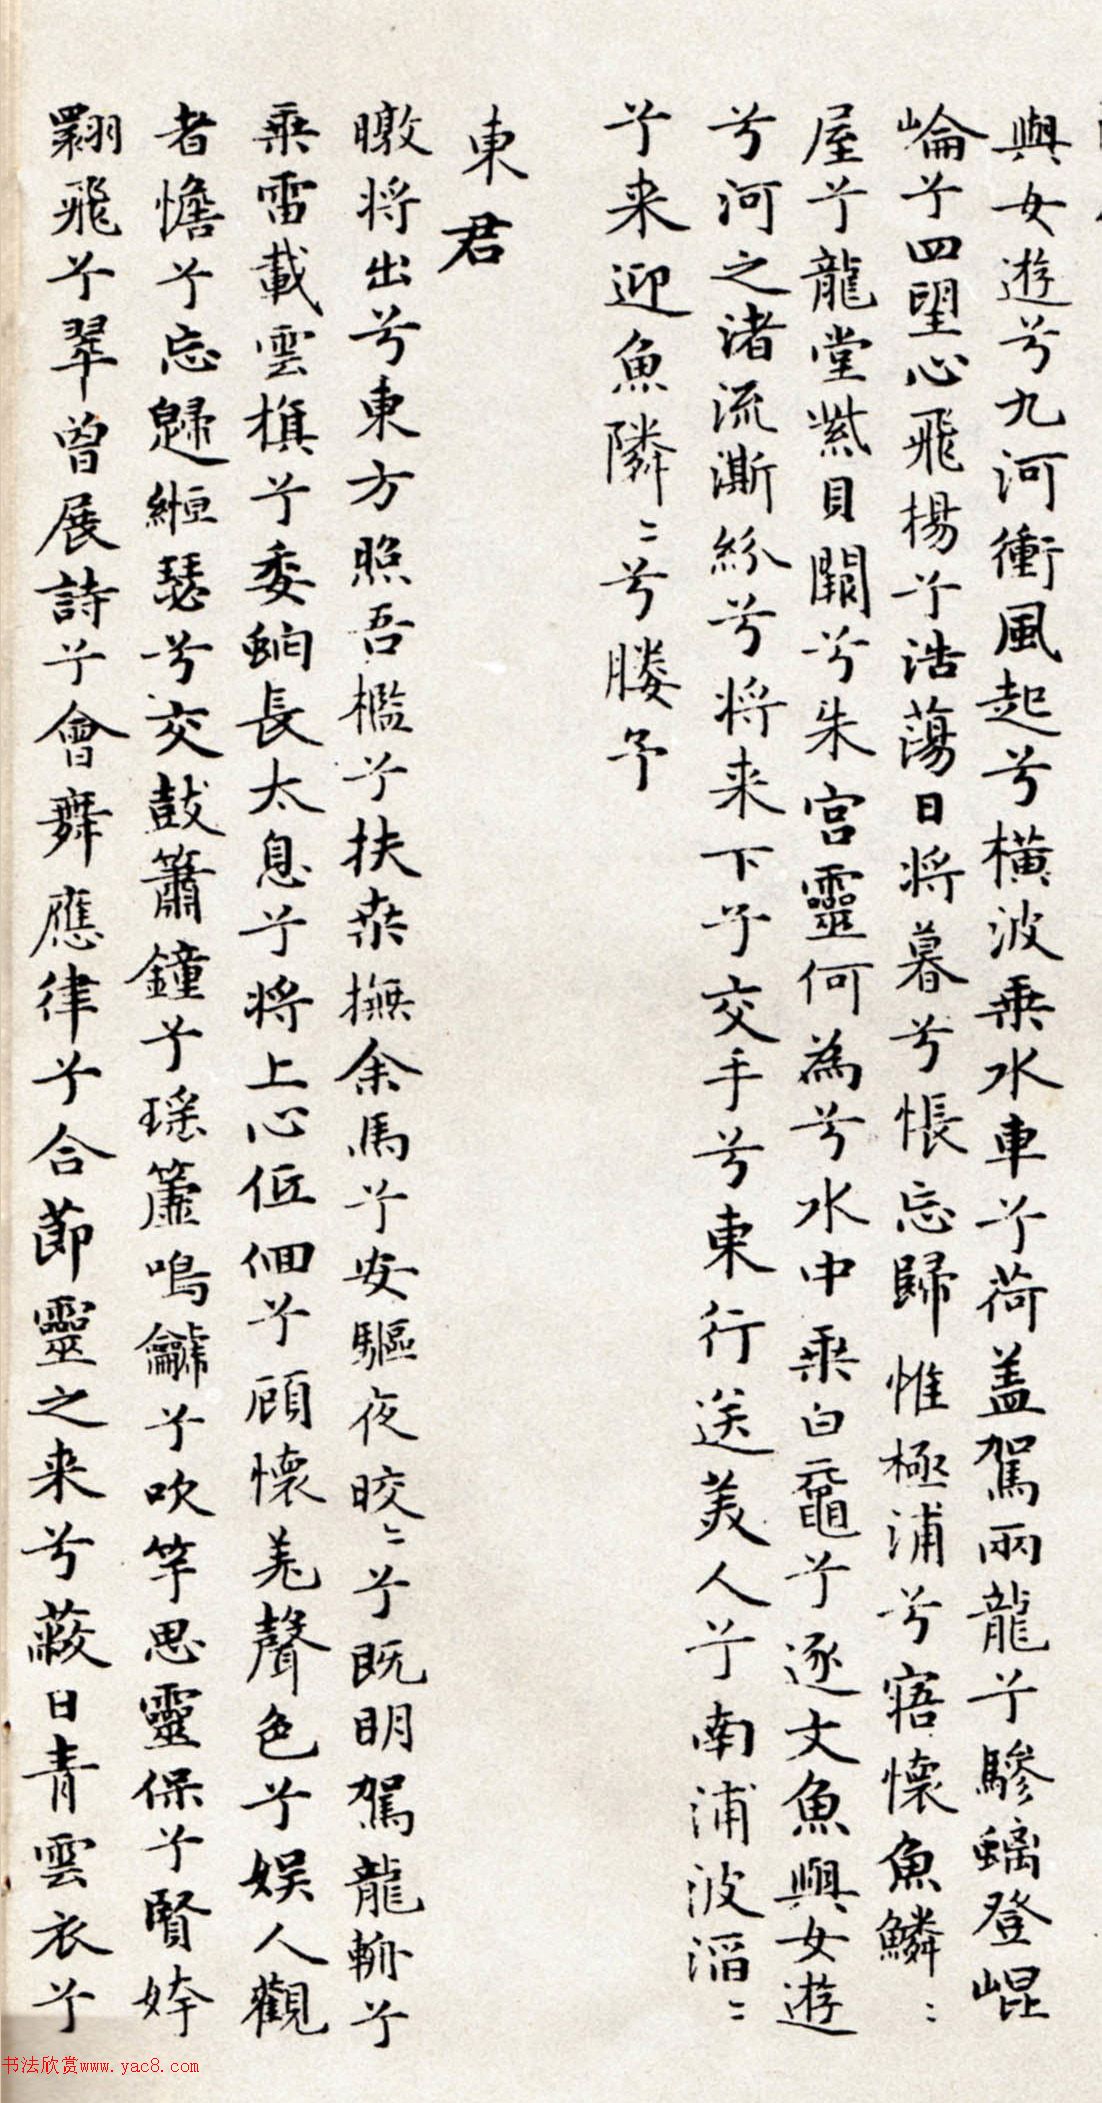 與女遊兮九河衝風起兮橫波乘水車兮荷盖駕兩龍兮驂螭登崐
崘兮四望心飛楊兮浩蕩日將暮兮悵忘歸惟極浦兮寤懷魚鱗〻
屋兮龍堂紫貝闕兮朱宮靈何為兮水中乘白黿兮逐文魚與女遊
兮河之渚流澌紛兮將来下子交手兮東行送美人兮南浦波滔〻
兮来迎魚隣〻兮媵予
東君
暾将出兮東方照吾檻兮扶桒撫余馬兮安驅夜晈〻兮既明駕龍輈兮
乘雷載雲旗兮委蛇長太息兮将上心低佪兮顧懷羌聲色兮娱人觀
者憺兮忘歸縆瑟兮交鼓簫鐘兮瑤簴鳴龥兮吹竽思靈保兮賢姱
翾飛兮翠曾展詩兮會舞應律兮合節靈之来兮蔽日青雲衣兮
书法欣赏www.yac8.com